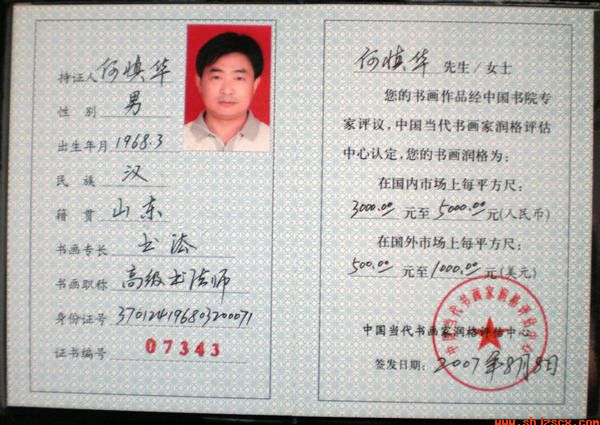 持证人 何慎华
性 别 男
出生年月 1968.3
民 族 汉
籍 贯 山东
书画专长 书法
书画职称 高级书法师
身份证号 370124196803200071
证书编号 07343
何慎华 先生/女士
您的书画作品经中国书院专
家评议，中国当代书画家润格评估
中心认定，您的书画润格为：
在国内市场上每平方尺：
3000.00 元至 5000.00 元(人民币)
在国外市场上每平方尺：
500.00 元至 1000.00 元(美元)
中国当代书画家润格评估中心
中国当代书画家润格评估中心
签发日期： 2007年8月8日
www.shjzscx.com